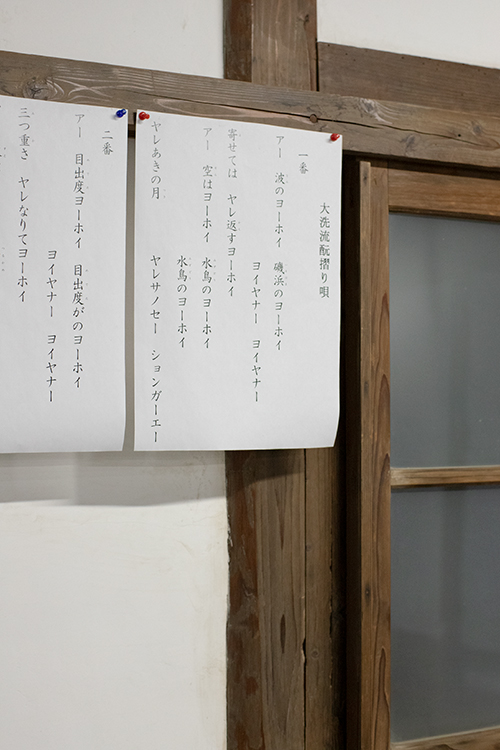 大洗流酛摺り唄
一番
アー 波のヨーホイ 磯浜のヨーホイ
ヨイヤナー ヨイヤナー
寄せては ヤレ返すヨーホイ
アー 空はヨーホイ 水鳥のヨーホイ
水鳥のヨーホイ
ヤレあきの月 ヤレサノセー ションガーエー
二番
アー 目出度ヨーホイ 目出度がのヨーホイ
ヨイヤナー ヨイヤナー
三つ重さ ヤレなりてヨーホイ